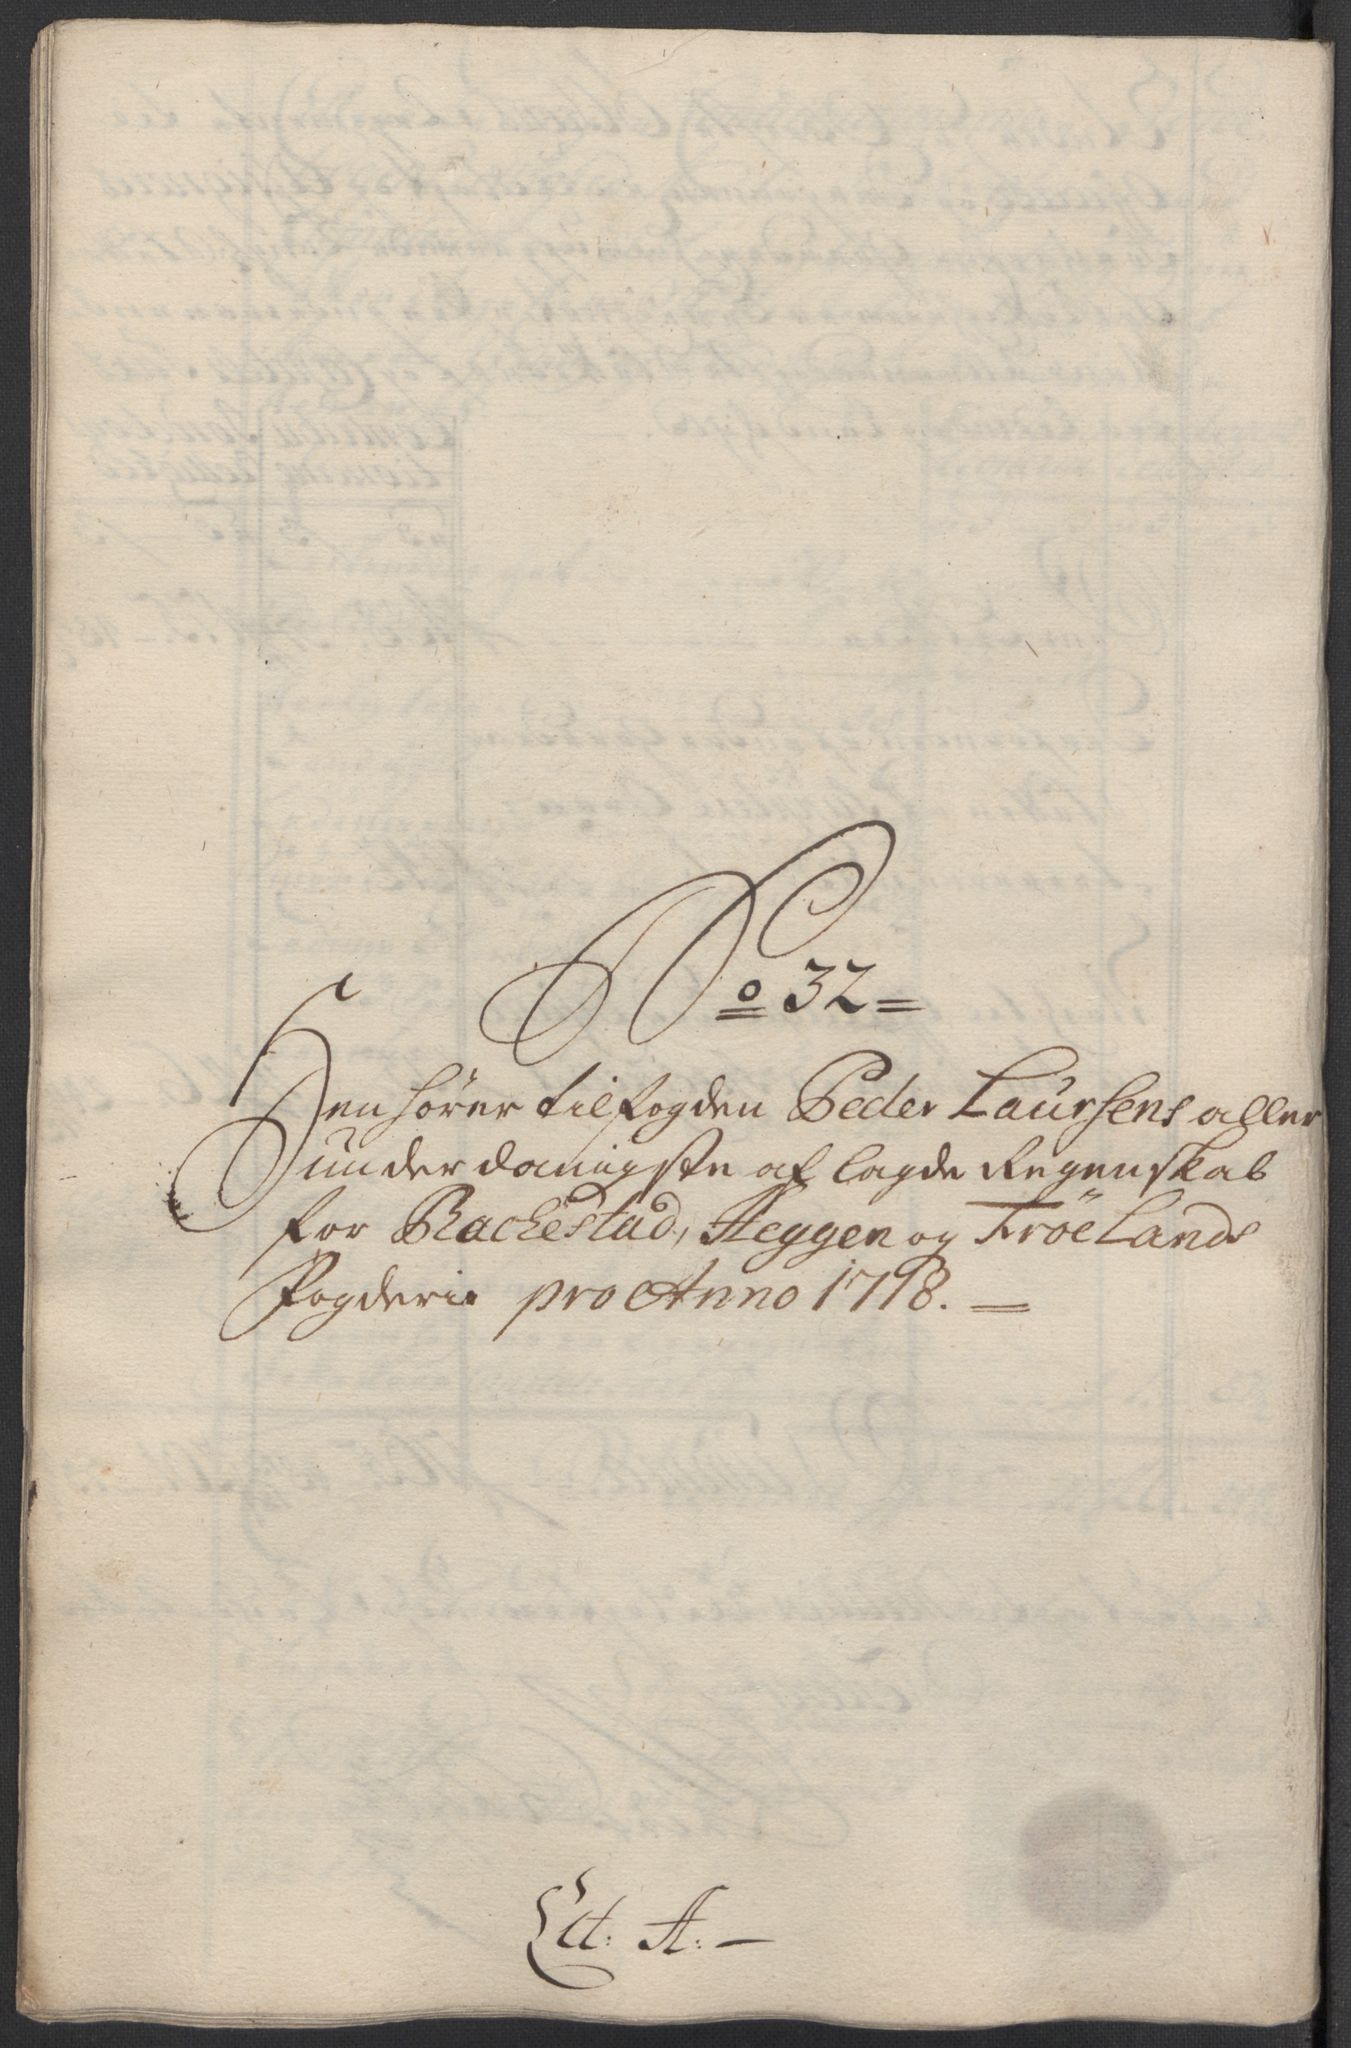 No 32 =
Henhører til fogden Peder Laursens aller
underdanigste aflagde Regenskab
for Rachestad, Heggen og Frölands
Fogderie pro Anno 1718. =
Litt: A: —